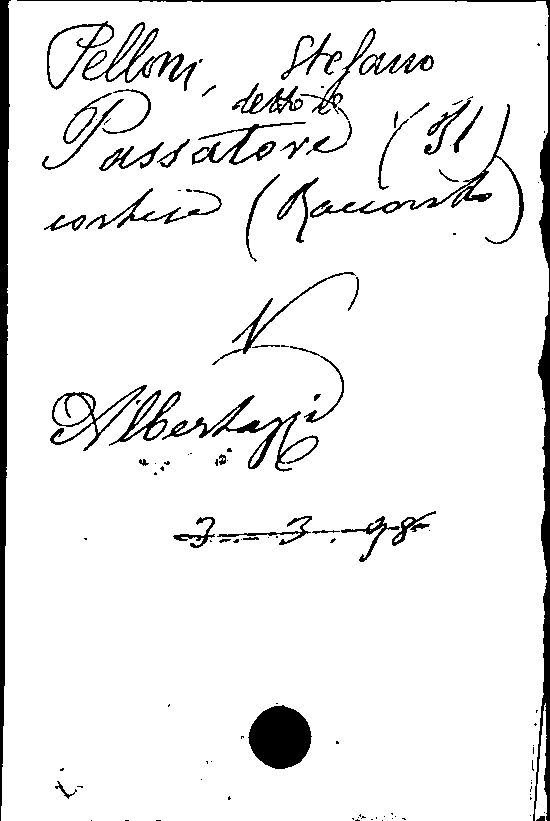 Pelloni, Stefano
detto il
Passatore (Il)
cortese (Racconto)
V
Albertazzi
3. 3. 98